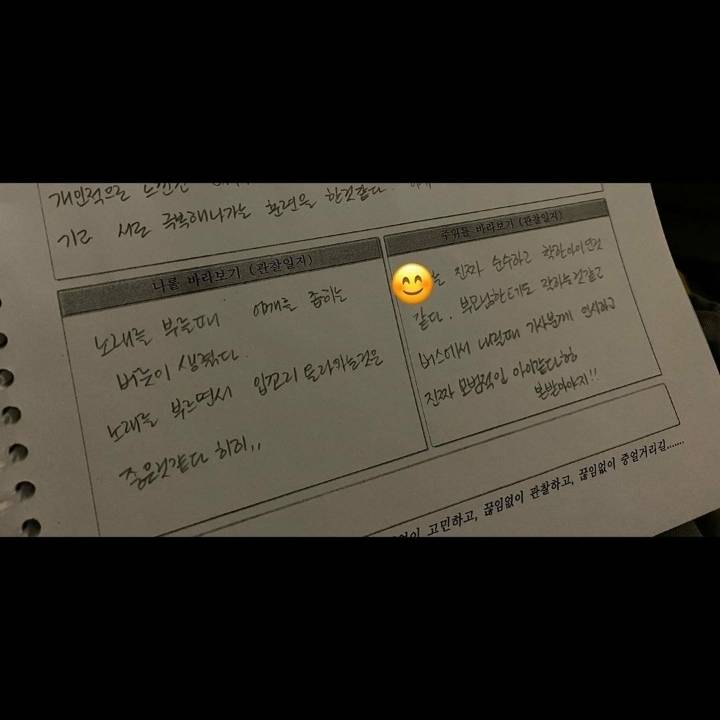 개인적으로 느낀건
기고 서로 극복해나가는 훈련을 한것같다.
나를 바라보기 (관찰일지)
노래를 부를때 어깨를 좁히는
버릇이 생겼다.
노래를 부르면서 입꼬리 올라가는것은
좋은것같다 히히,,
주위를 바라보기 (관찰일지)
는 진짜 순수하고 착한아이인것
같다. 부모님한테도 잘하는것같고
버스에서 내릴때 기사분께 인사하고
진짜 모범적인 아이같다
본받아야지!!
고민하고, 끊임없이 관찰하고, 끊임없이 중얼거리길.......